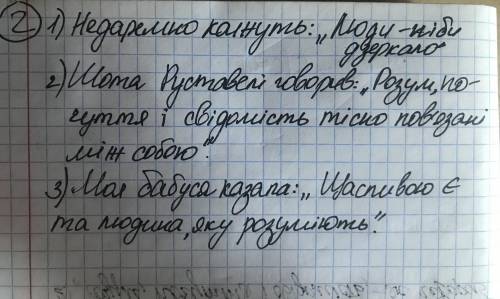 2) 1) Недаремно кажуть: „Люди - ніби
дзеркало"
2) Шота Руставелі говорив: „Розум, по-
чуття і свідомість тісно пов'язані
між собою".
3) Моя бабуся казала: „Щасливою є
та людина, яку розуміють".